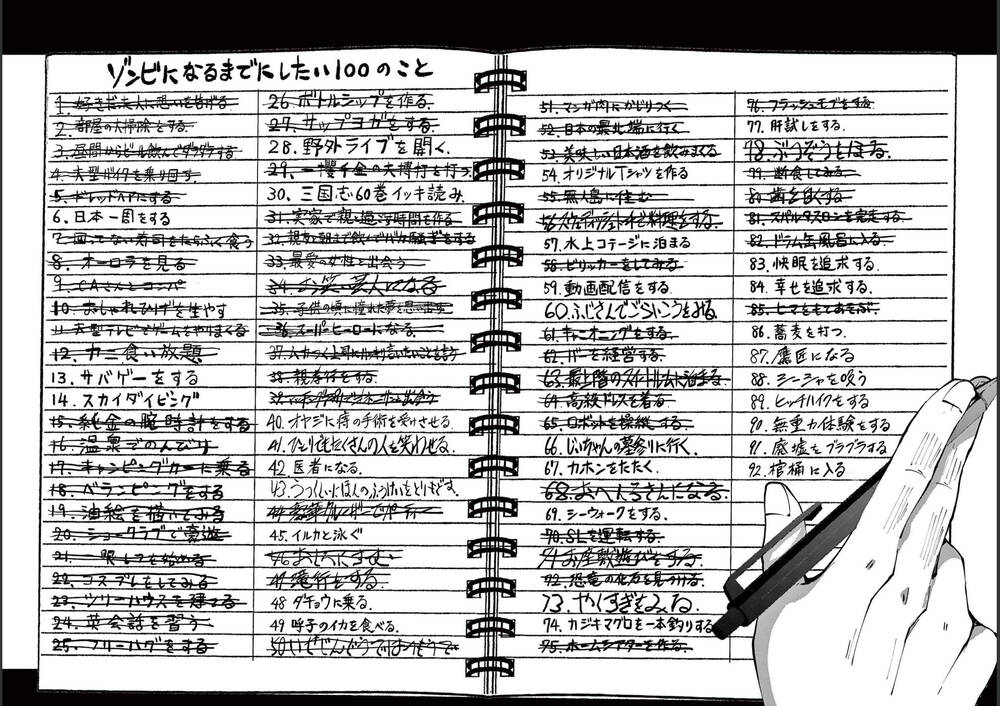 ゾンビになるまでにしたい100のこと
1. 好きだった人に思いを告げる
2. 部屋の大掃除をする。
3. 昼間からビール飲んでダラダラする
4. 大型バイクを乗り回す。
5. ドレッドヘアにする
6. 日本一周をする
7. 回ってない寿司をたらふく食う
8. オーロラを見る
9. CAさんとコンパ
10. おしゃれひげを生やす
11. 大型テレビでゲームをやりまくる
12. カニ食い放題
13. サバゲーをする
14. スカイダイビング
15. 純金の腕時計をする
16. 温泉でのんびり
17. キャンピングカーに乗る
18. ベランピングをする
19. 油絵を描いてみる
20. ショークラブで豪遊
21.
22. コスプレをしてみる
23. ツリーハウスを建てる
24. 英会話を習う
25. フリーハグをする
26. ボトルシップを作る.
27. サップヨガをする.
28. 野外ライブを開く.
29. 一攫千金の大博打を打つ.
30. 三国志60巻イッキ読み
31. 実家で親と過ごす時間を作る
32. 親友と朝まで飲んでバカ騒ぎをする
33. 最愛の女性と出会う
34. お笑い芸人になる
35. 子供の頃に憧れた夢を思い出す
36. スーパーヒーローになる.
37. ムカつく上司に言いたいことを言う
38. 親孝行をする.
39.
40. オヤジに痔の手術を受けさせる.
41. ひとりでもたくさんの人を笑わせる.
42. 医者になる.
43. うつくしいにほんのふうけいをとりもどす.
44. 豪華クルーザーでパーティー
45. イルカと泳ぐ
46. おしろにすむ
47. 滝行をする.
48 ダチョウに乗る.
49 呼子のイカを食べる.
50.
51. マンガ肉にかじりつく
52. 日本の最北端に行く
53. 美味しい日本酒を飲みまくる
54 オリジナルTシャツを作る
55. 無人島に住む
56. スウェーデンで料理をする.
57. 水上コテージに泊まる
58. ピリッカーをしてみる
59. 動画配信をする.
60. ふじさんでごらいこうをみる.
61. キャニオニングをする.
62. バーを経営する.
63. 最上階のスイートルームに泊まる.
64. 高級ドレスを着る
65. ロボットを操縦する.
66. じいちゃんの墓参りに行く.
67. カホンをたたく.
68. おへんろさんになる.
69. シーウォークをする.
70. SLを運転する.
71. お座敷遊びをする.
72. 恐竜の化石を見つける.
73. やくすぎをみる.
74. カジキマグロを一本釣りする
75. ホームシアターを作る.
76. フラッシュモブをする
77. 肝試しをする.
78. ぶつぞうをほる.
79. 断食してみる.
80. 歯を白くする
81. スパルタスロンを完走する.
82. ドラム缶風呂に入る.
83. 快眠を追求する.
84. 幸せを追求する.
85. ヒマをもてあそぶ.
86. 蕎麦を打つ.
87. 鷹匠になる
88. シーシャを吸う
89. ヒッチハイクをする
90. 無重力体験をする
91. 廃墟をブラブラする
92. 棺桶に入る